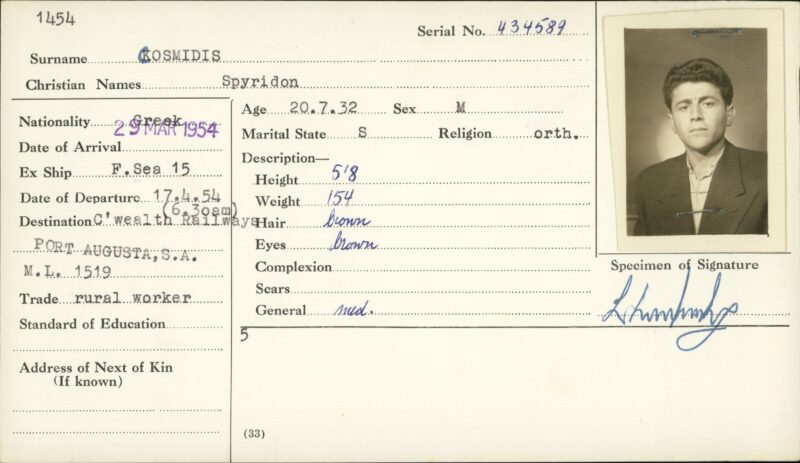 1454
Serial No. 434589
Surname COSMIDIS
Christian Names Spyridon
Nationality Greek
Date of Arrival 29 MAR 1954
Ex Ship F.Sea 15
Date of Departure 17.4.54
(6.30am)
Destination C'wealth Railways
PORT AUGUSTA, S.A.
M.L. 1519
Trade rural worker
Standard of Education
Address of Next of Kin
(If known)
Age 20.7.32 Sex M
Marital State S Religion orth.
Description—
Height 5'8
Weight 154
Hair brown
Eyes brown
Complexion
Scars
General med.
5
(33)
Specimen of Signature